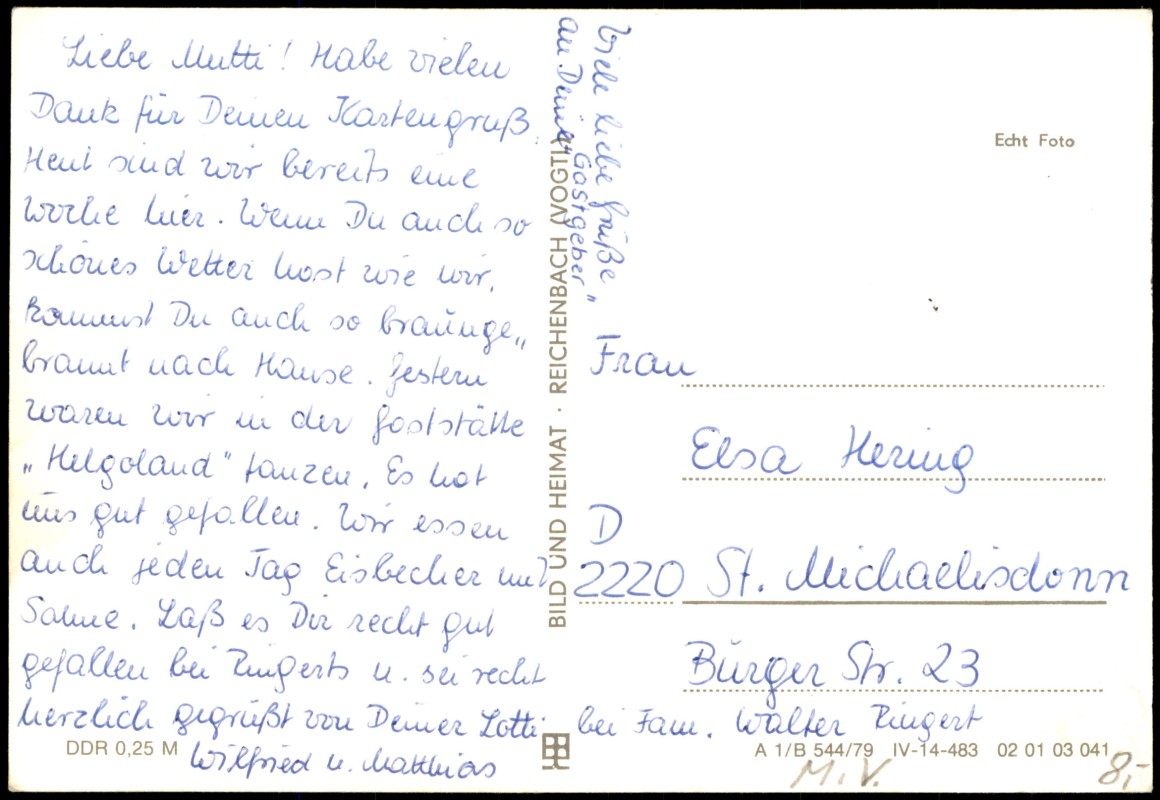 Liebe Mutti! Habe vielen
Dank für Deinen Kartengruß.
Heut sind wir bereits eine
Woche hier. Wenn Du auch so
schönes Wetter hast wie wir,
kommst Du auch so braunge„
brannt nach Hause. Gestern
waren wir in der Gaststätte
„Helgoland" tanzen. Es hat
uns gut gefallen. Wir essen
auch jeden Tag Eisbecher mit
Sahne. Laß es Dir recht gut
gefallen bei Ringerts u. sei recht
herzlich gegrüßt von Deiner Lotti
Wilfried u. Matthias
Viele liebe Grüße
an Deine „Gastgeber"
BILD UND HEIMAT · REICHENBACH (VOGTL
Echt Foto
Frau
Elsa Hering
D
2220 St. Michaelisdonn
Bürger Str. 23
bei Fam. Walter Ringert
DDR 0,25 M
A 1/B 544/79 IV-14-483 02 01 03 041
M.V.
8,-